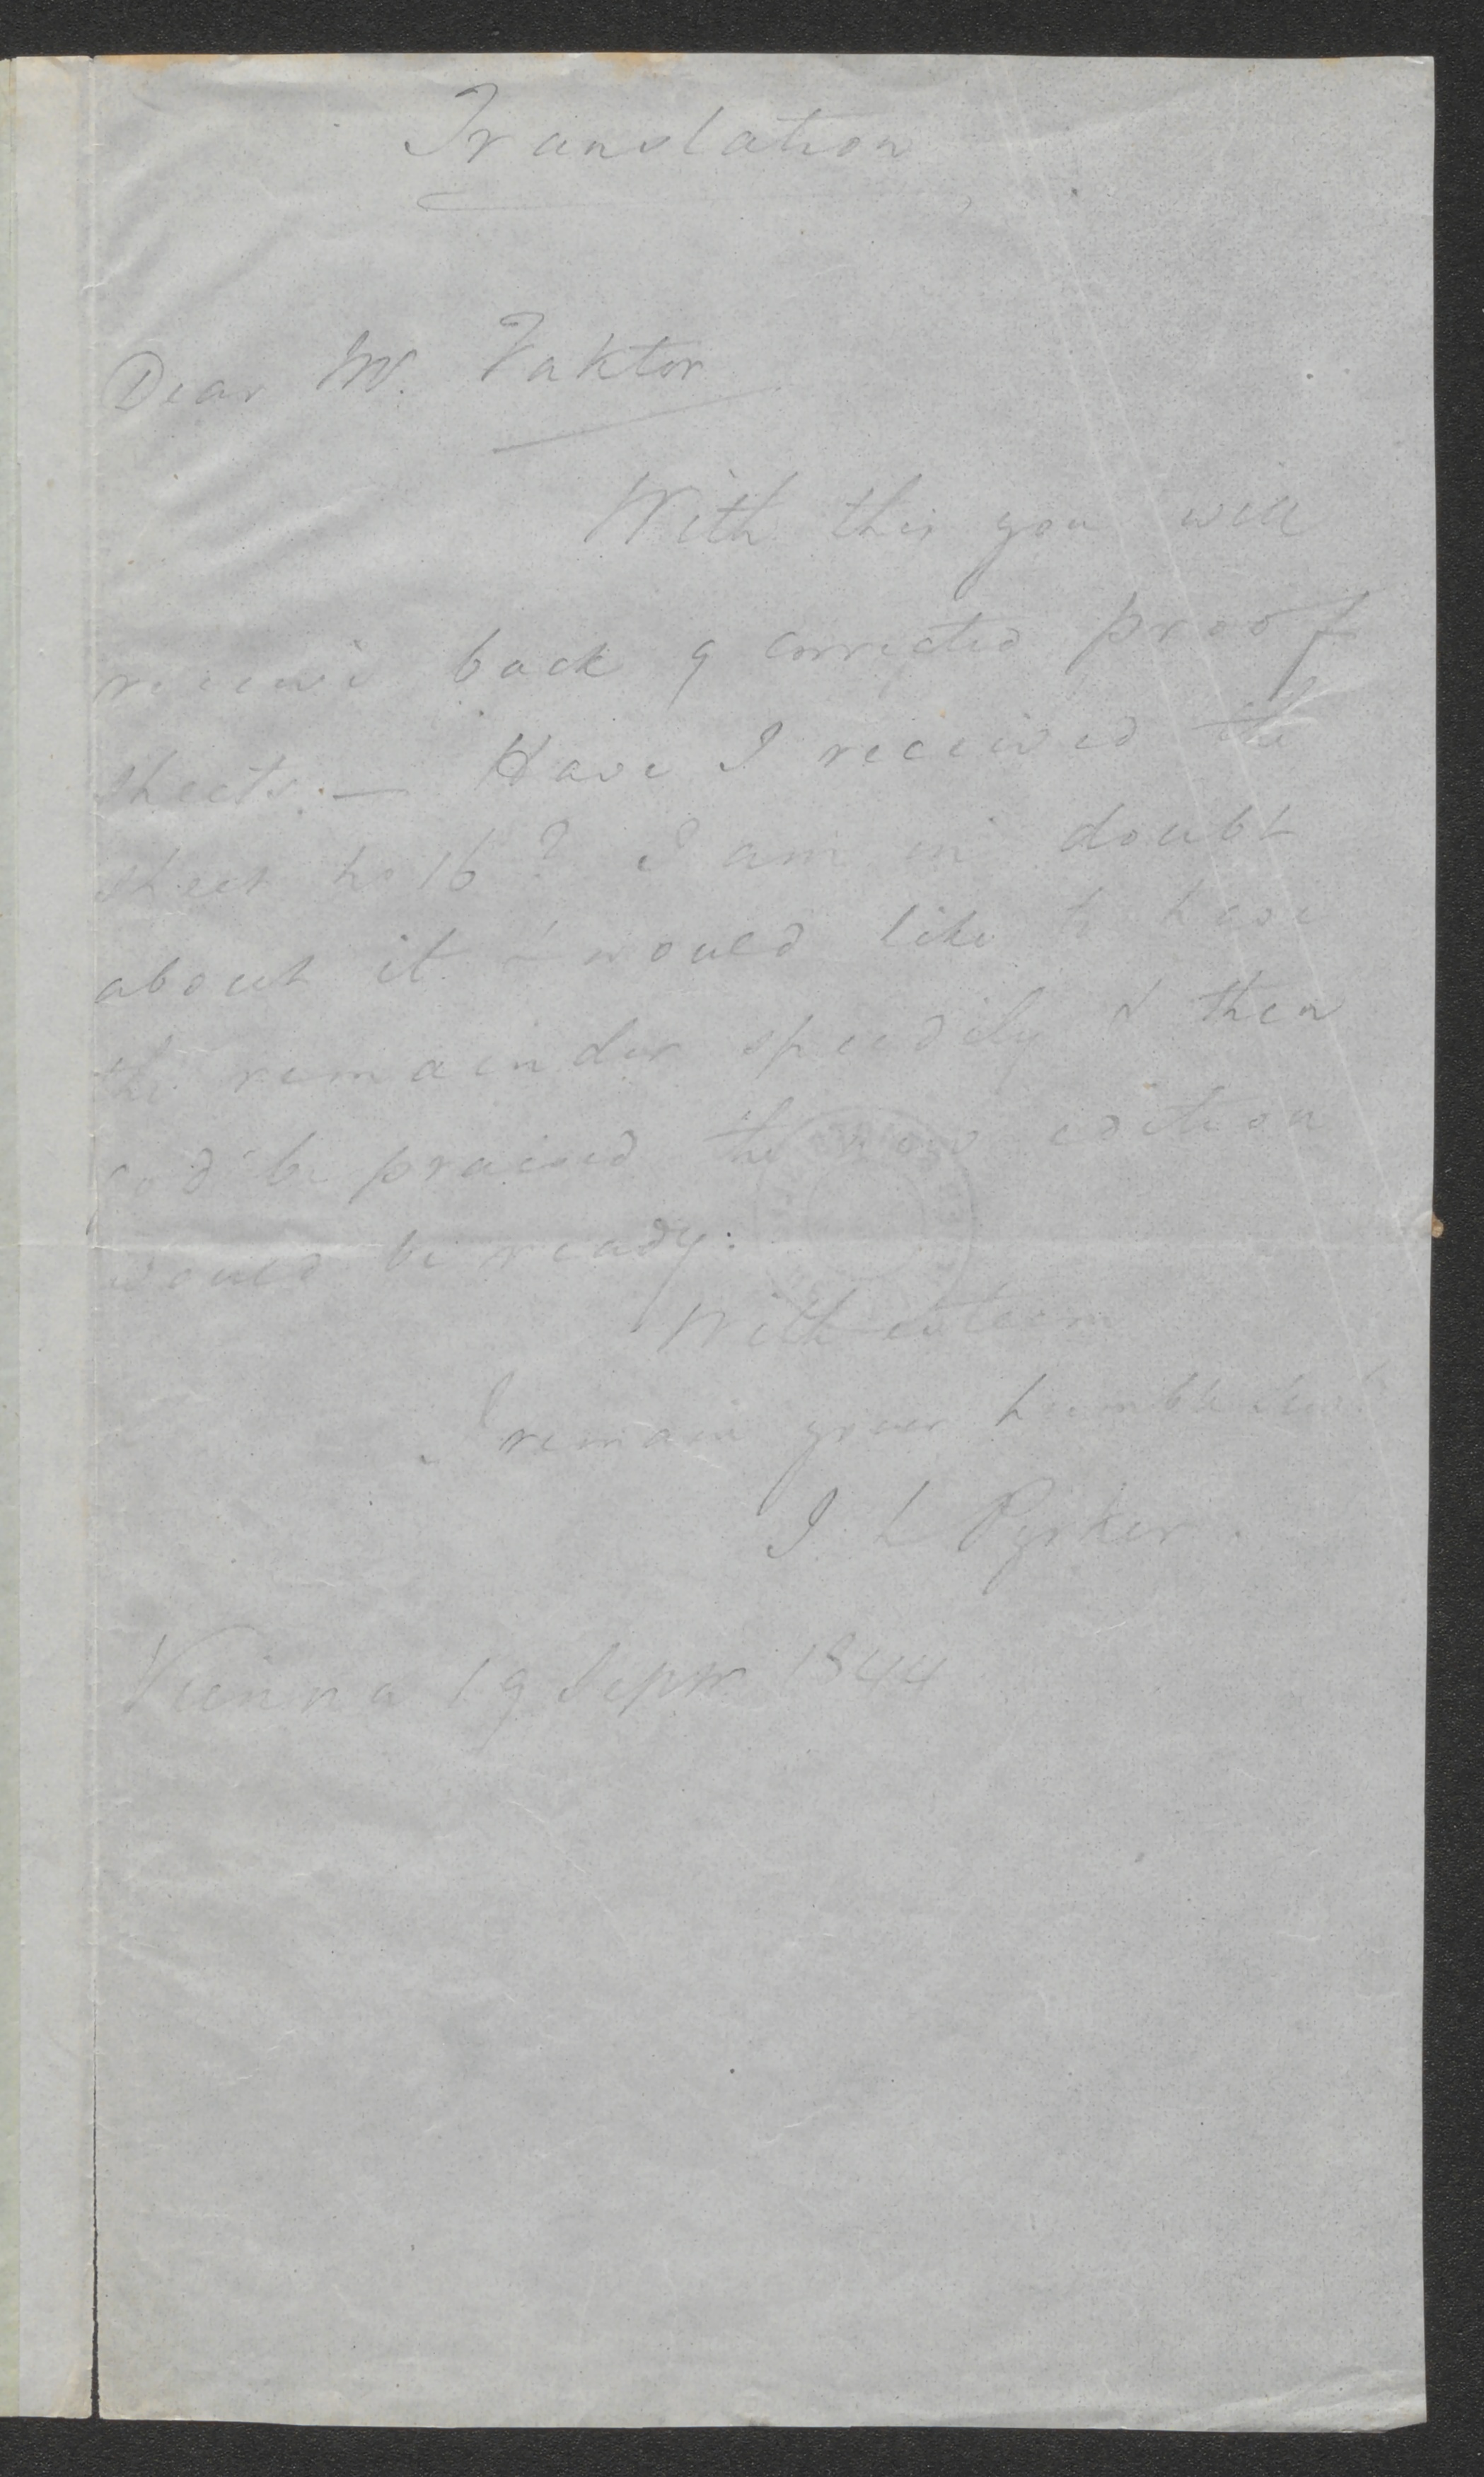 Translation
Dear Mr. Faktor
With this you will
receive back 9 corrected proof
sheets. — Have I received the
sheet no 16? I am in doubt
about it & would like to have
the remainder speedily & then
god be praised the new edition
would be ready.
With esteem
I remain your humble
I. L. Pyrker.
Vienna 19 Sepr 1844